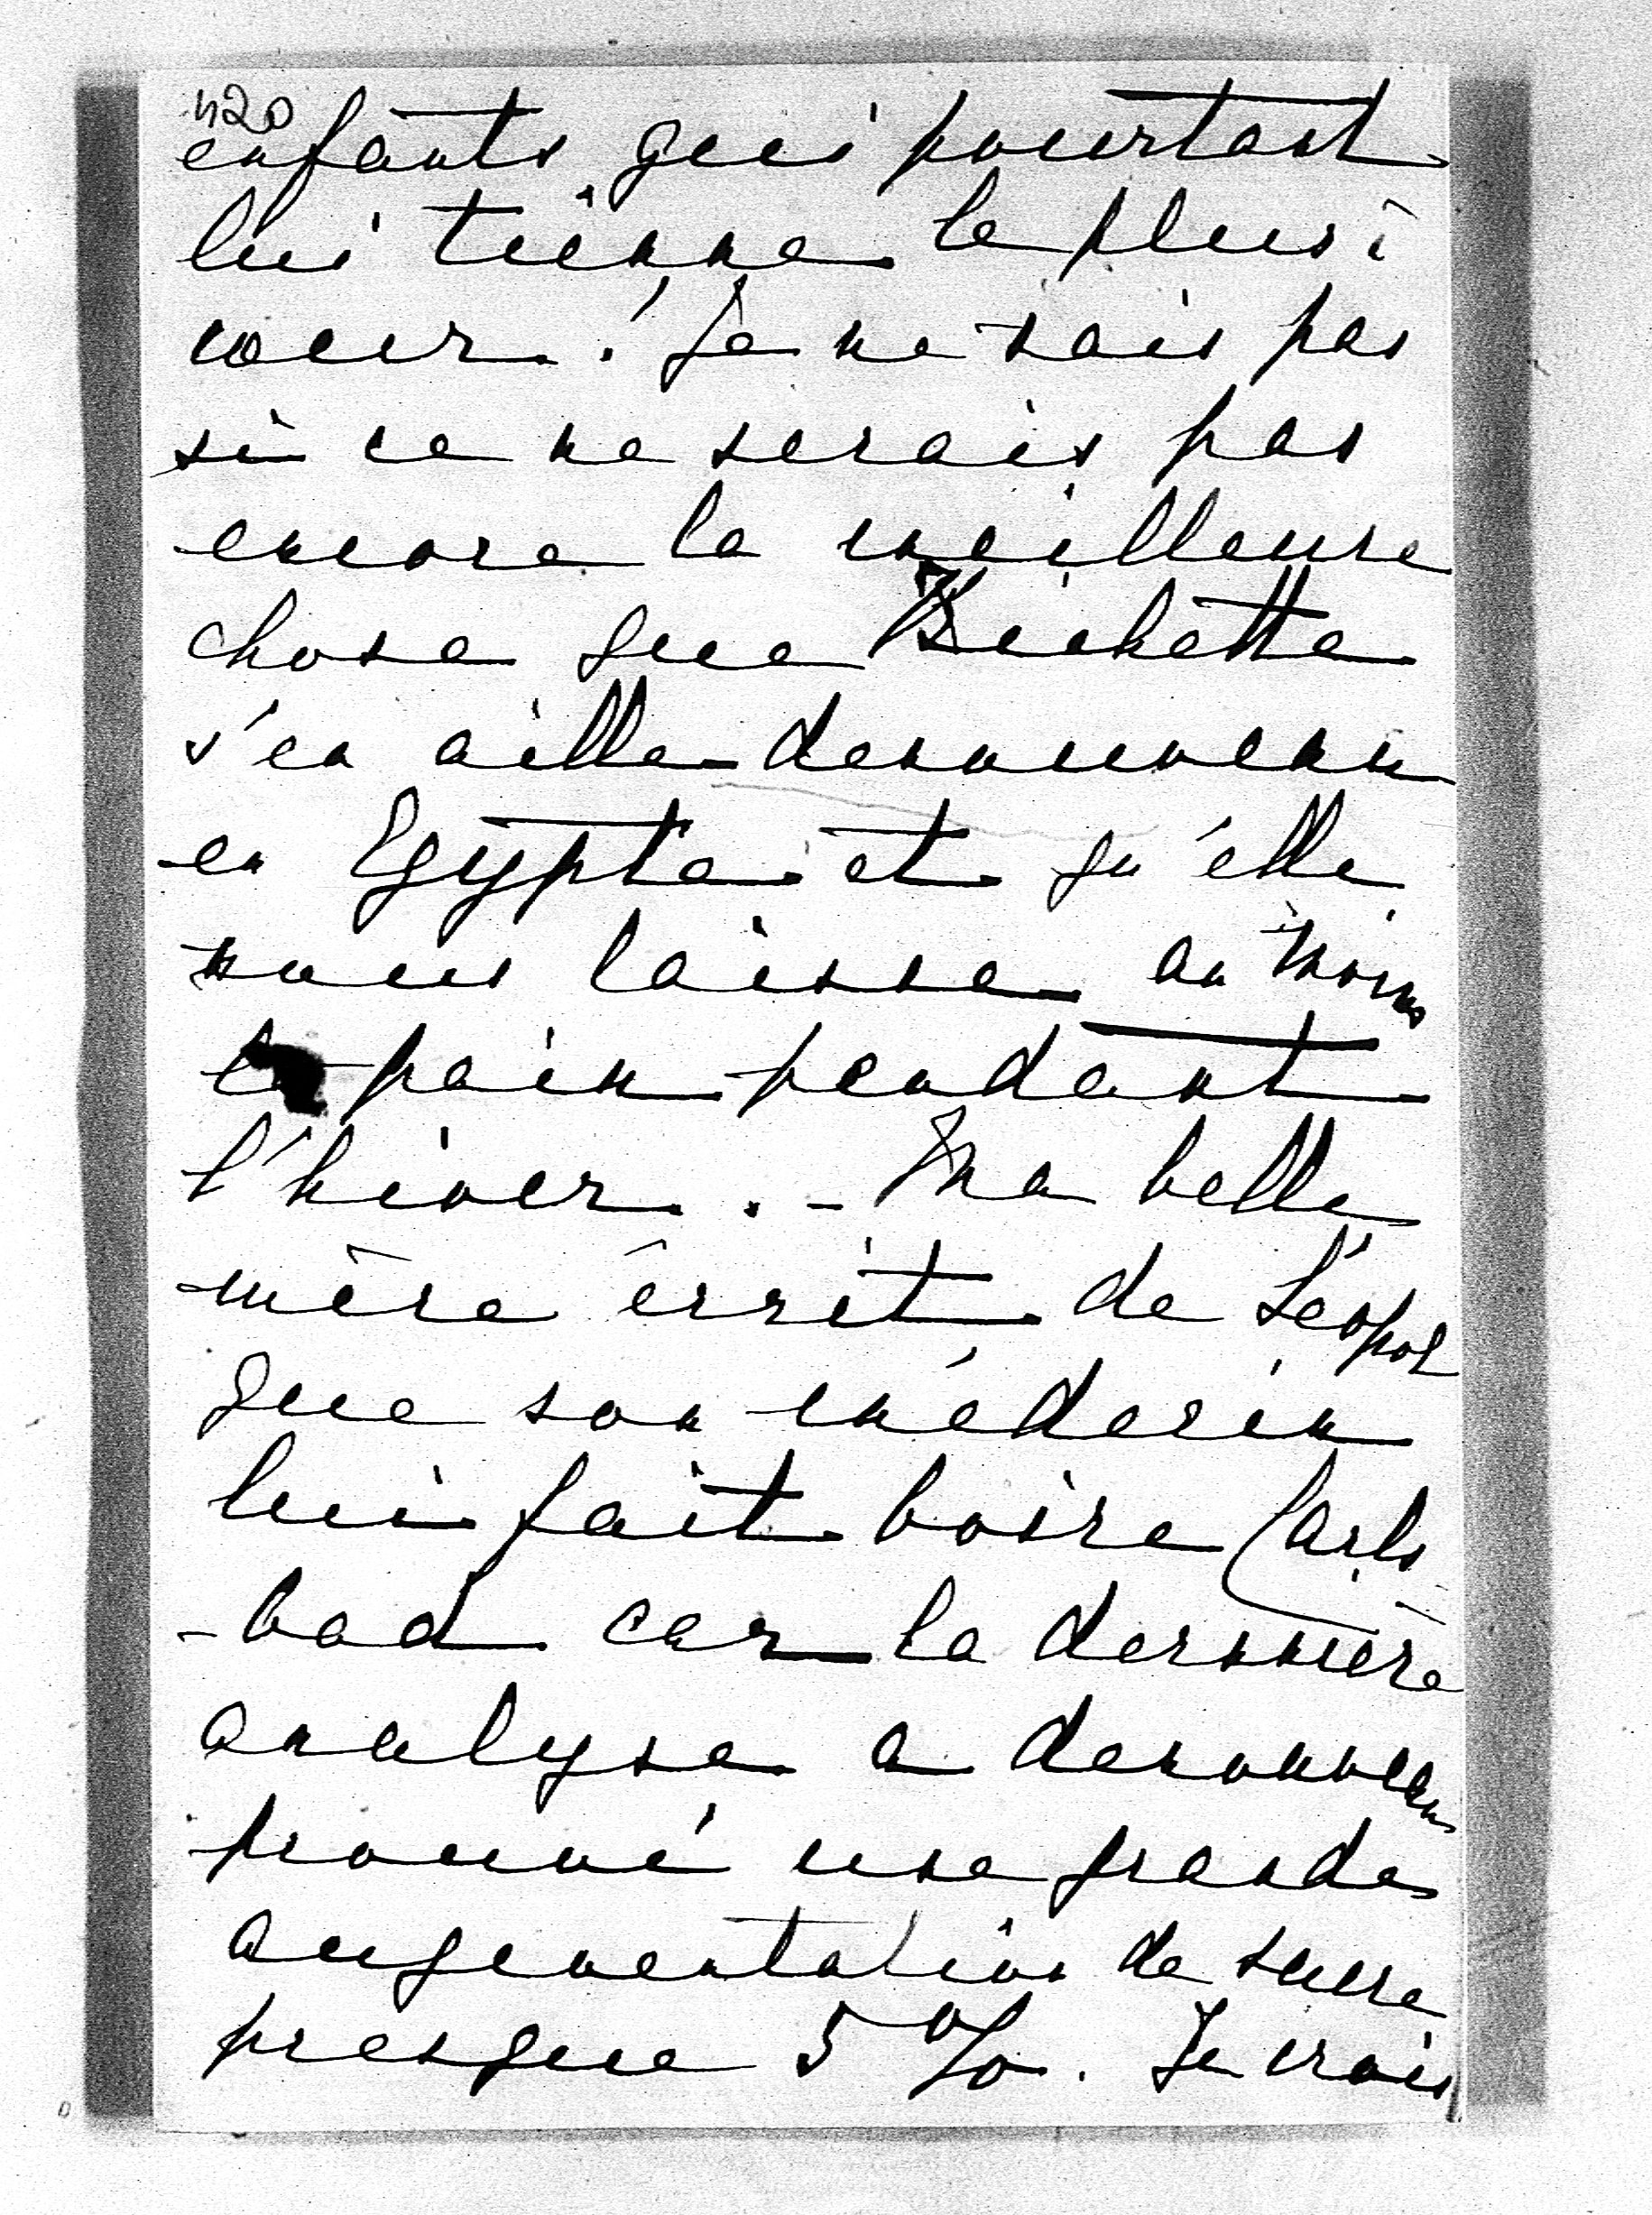 420
enfants qui pourtant
lui tienne le plus à
coeur. Je ne sais pas
si ce ne serais pas
encore la meilleure
chose que
s'en aille denouveau
en Egypte et qu'elle
nous laisse au moins
la paix pendant
l'hiver. - Ma belle
mère écrit de Léopol
que son médecin
lui fait boire Carls
-bad car la dernière
analyse a denouveau
prouvé une grande
augmentation de sucre
presque 5 %. Je crois